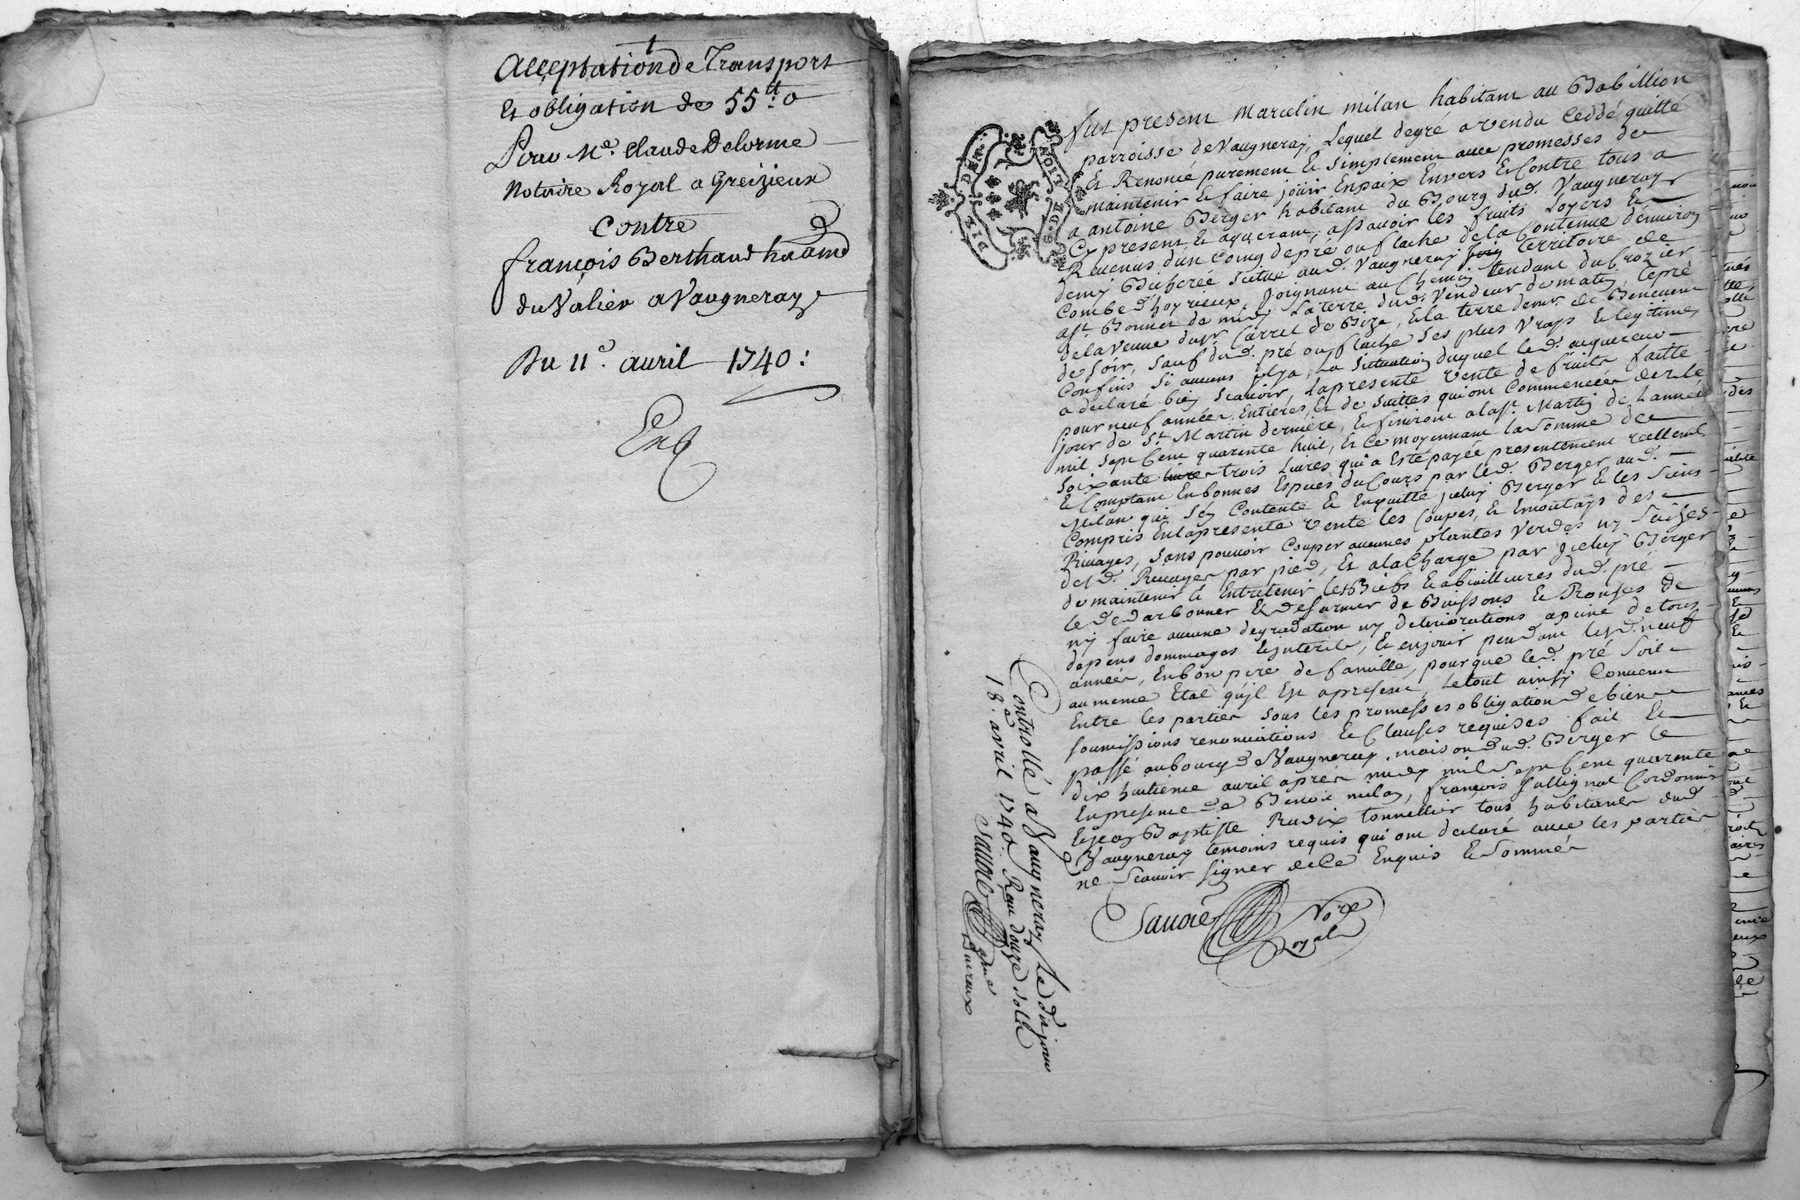 Acceptation de Transport
Et obligation de 55tt: 0
Pour Me. Claude Delorme
Notaire Royal a Greizieux
Contre
françois Berthaud habitand
du Valier a Vaugneray
Du 11e. auril 1740:
Enq
DIX DEN. NOIT G. DE
fut present Marcelin milan habitant au Babillion
parroisse de Vaugneray, Lequel degré a vendu Ceddé quitté
Et Renoncé purement Et simplement auec promesses de
maintenir Et faire joüir Enpaix Envers Et Contre tous a
a antoine Berger habitant du Bourg dud. Vaugneray
Cy present, Et aquerant, assauoir les fruits Loyers Et
Reuenus d'un Coing de pré ou flache de la Contenue d'enuiron
demy Bicherée situé aud. Vaugneray territoire de
Combe d'hoyrieux, Joignant au Chemin tendant du Crozier
a st. Bonnet de midy, La terre dud. Vendeur de matin, Le pré
de la Veuue du sr. Carret de Bize, Et la terre de de Beneuent
de soir, sauf dud. pré ou flache ses plus Vrays Et legitimes
Confins si aucuns il y a, La situation duquel led. aquereur
a declaré bien scauoir, La presente Vente de fruits faitte
pour neuf années, Entieres, Et de suittes qui ont Commencées dez le
jour de St. Martin derniere, Et finiront a la st. Martin de L'année
mil sept Cent quarente huit, Et Ce moyennant la somme de
soixante trois Liures, qui a Esté payée presentement reellement
Et Comptant En bonnes Especes du Cours par led. Berger aud.
Milan qui s'en Contente Et Enquitte jceluy Berger Et les siens
Compris En la presente Vente les Coupes, Et Emontays des
Riuages, sans pouuoir Couper aucunes plantes Verdes ny saizes
desd. Riuages par pied, Et a la Charge par jceluy Berger
de maintenir Et Entretenir les Biefs Et abreilleures dud. pré
Le dedarbonner Et desarmer de Buissons Et Ronses de
ny faire aucune degradation ny deteriorations a peine de tous
depens dommages Et jnterets, Et en jouir pendant lesd. neuf
années, En bon pere de famille, pour que led. pré soit
au meme Etat qu'jl Est apresent, Le tout ainsy Convenu
Entre les parties sous les promesses obligation de biens
soumissions renonciations Et Clauses requises fait Et
passé au bourg de Vaugneray, maison dud. Berger le
dix huitieme auril apres midy mil sept Cent quarente
En presence de Benoit milan, françois Sallignat Cordonnier
Et jean Baptiste Rudix tonnellier tous habitants dud.
Vaugneray temoins requis qui ont declaré auec les parties
ne scauoir signer de Ce Enquis Et sommés
Sauoré No.re Royal
Controllé a Vaugneray Le d. jour
18e. avril 1740. Reçu douze sols
Sauoré